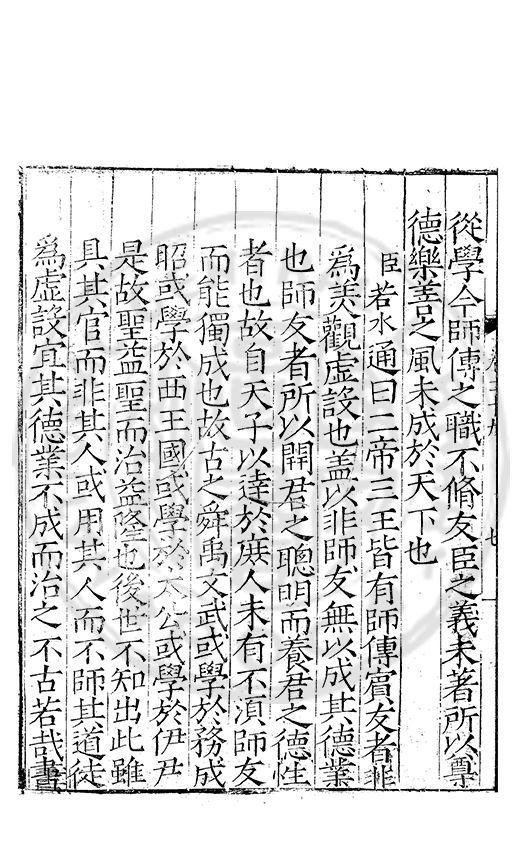 從學今師傅之職不脩友臣之義未著所以尊
德樂善之風未成於天下也
臣若水通曰二帝三王皆有師傅賓友者非
爲美觀虛設也盖以非師友無以成其德業
也師友者所以開君之聰明而養君之德性
者也故自天子以達於庶人未有不湏師友
而能獨成也故古之舜禹文武或學於務成
昭或學於西王國或學於太公或學於伊尹
是故聖益聖而治益隆也後世不知出此雖
具其官而非其人或用其人而不師其道徒
爲虛設宜其德業不成而治之不古若哉書